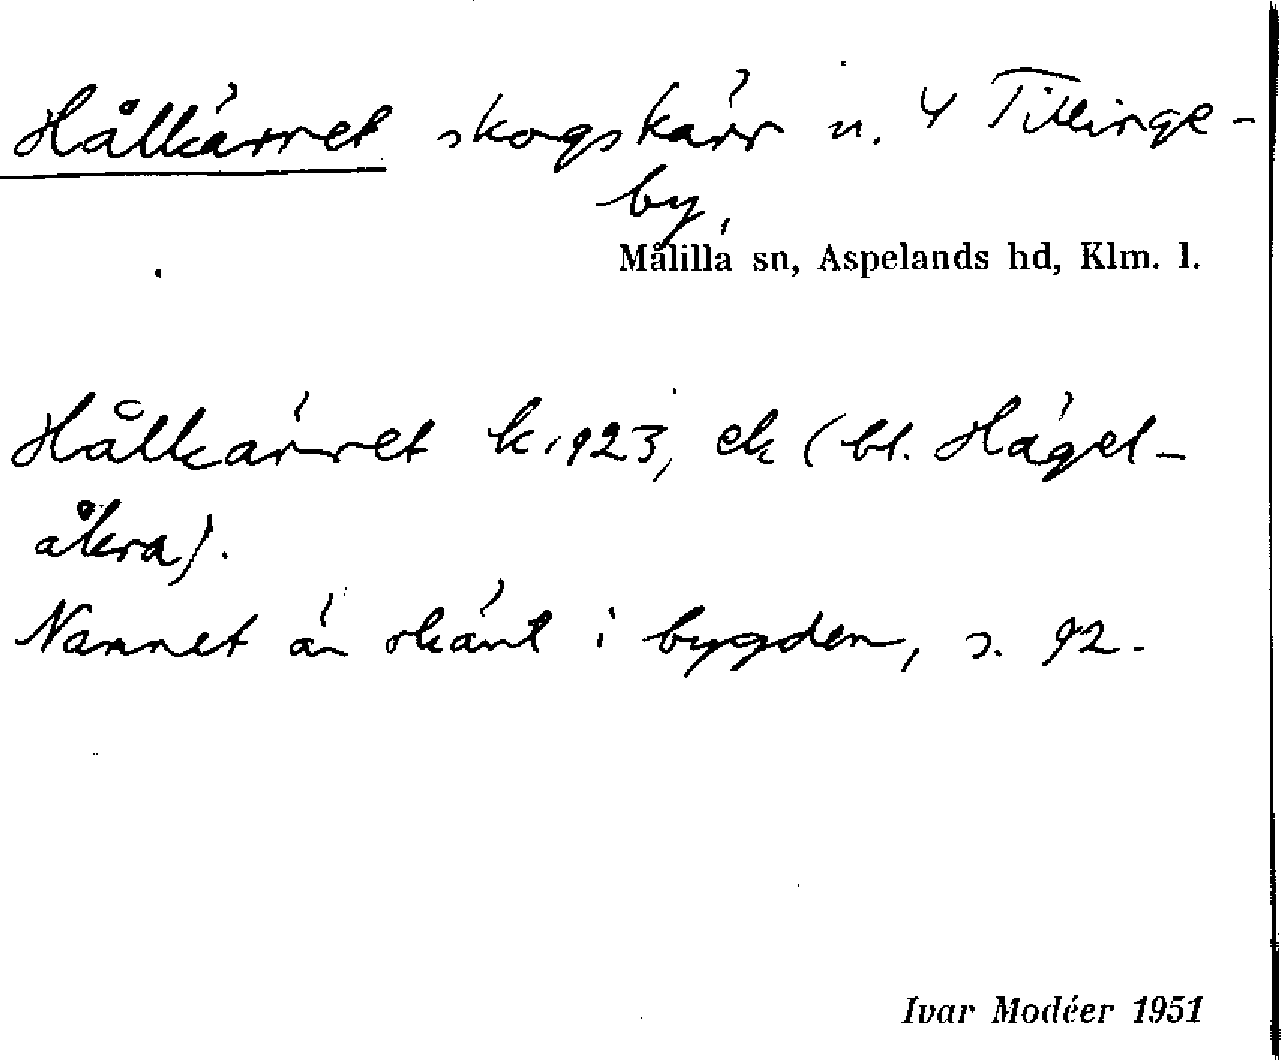 Hålkärret skogskärr n. 4 Titlinge-
by,
Målilla sn, Aspelands hd, Klm. l.
Hålkärret k. 1923, ek (bl. Hägel-
åkra).
Namnet är okänt i bygden, s. 92.
Ivar Modéer 1951